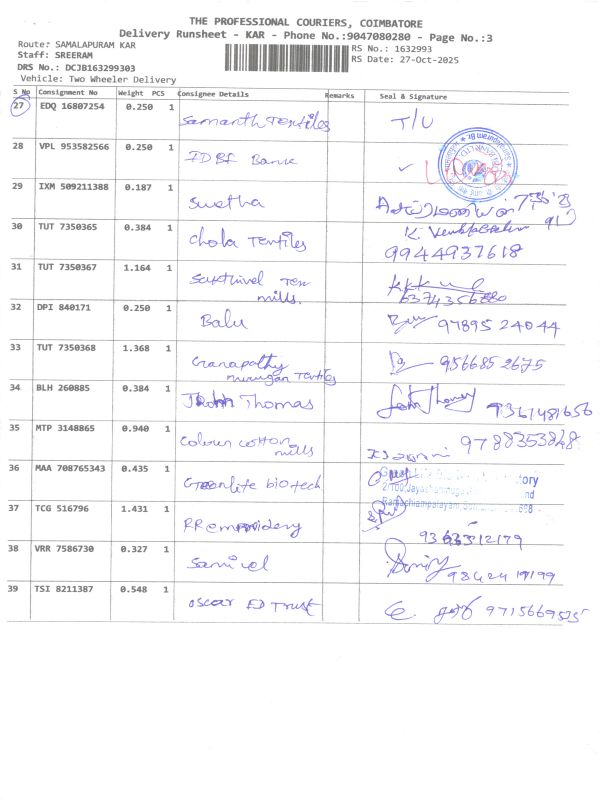 THE PROFESSIONAL COURIERS, COIMBATORE
Delivery Runsheet - KAR - Phone No.:9047080280 - Page No.:3
Route: SAMALAPURAM KAR
RS No.: 1632993
Staff: SREERAM
RS Date: 27-Oct-2025
DRS No.: DCJB163299303
Vehicle: Two Wheeler Delivery
S No Consignment No Weight PCS Consignee Details Remarks Seal & Signature
27 EDQ 16807254 0.250 1 Samanth Textiles T/U
28 VPL 953582566 0.250 1 IDBI Bank
29 IXM 509211388 0.187 1 Swetha
30 TUT 7350365 0.384 1 Chola Textiles K.
9944937618
31 TUT 7350367 1.164 1 Sakthivel Tex
mills.
6374356880
32 DPI 840171 0.250 1 Balu 97895 24044
33 TUT 7350368 1.368 1 Ganapathy
murugan Textiles
956685 2675
34 BLH 260885 0.384 1 John Thomas 9361481656
35 MTP 3148865 0.940 1 Colour cotton
mills
9788353868
36 MAA 708765343 0.435 1 Greenlife biotech
37 TCG 516796 1.431 1 RR embroidery
9363312179
38 VRR 7586730 0.327 1 Samivel
39 TSI 8211387 0.548 1 Oscar ED Trust 9715669525